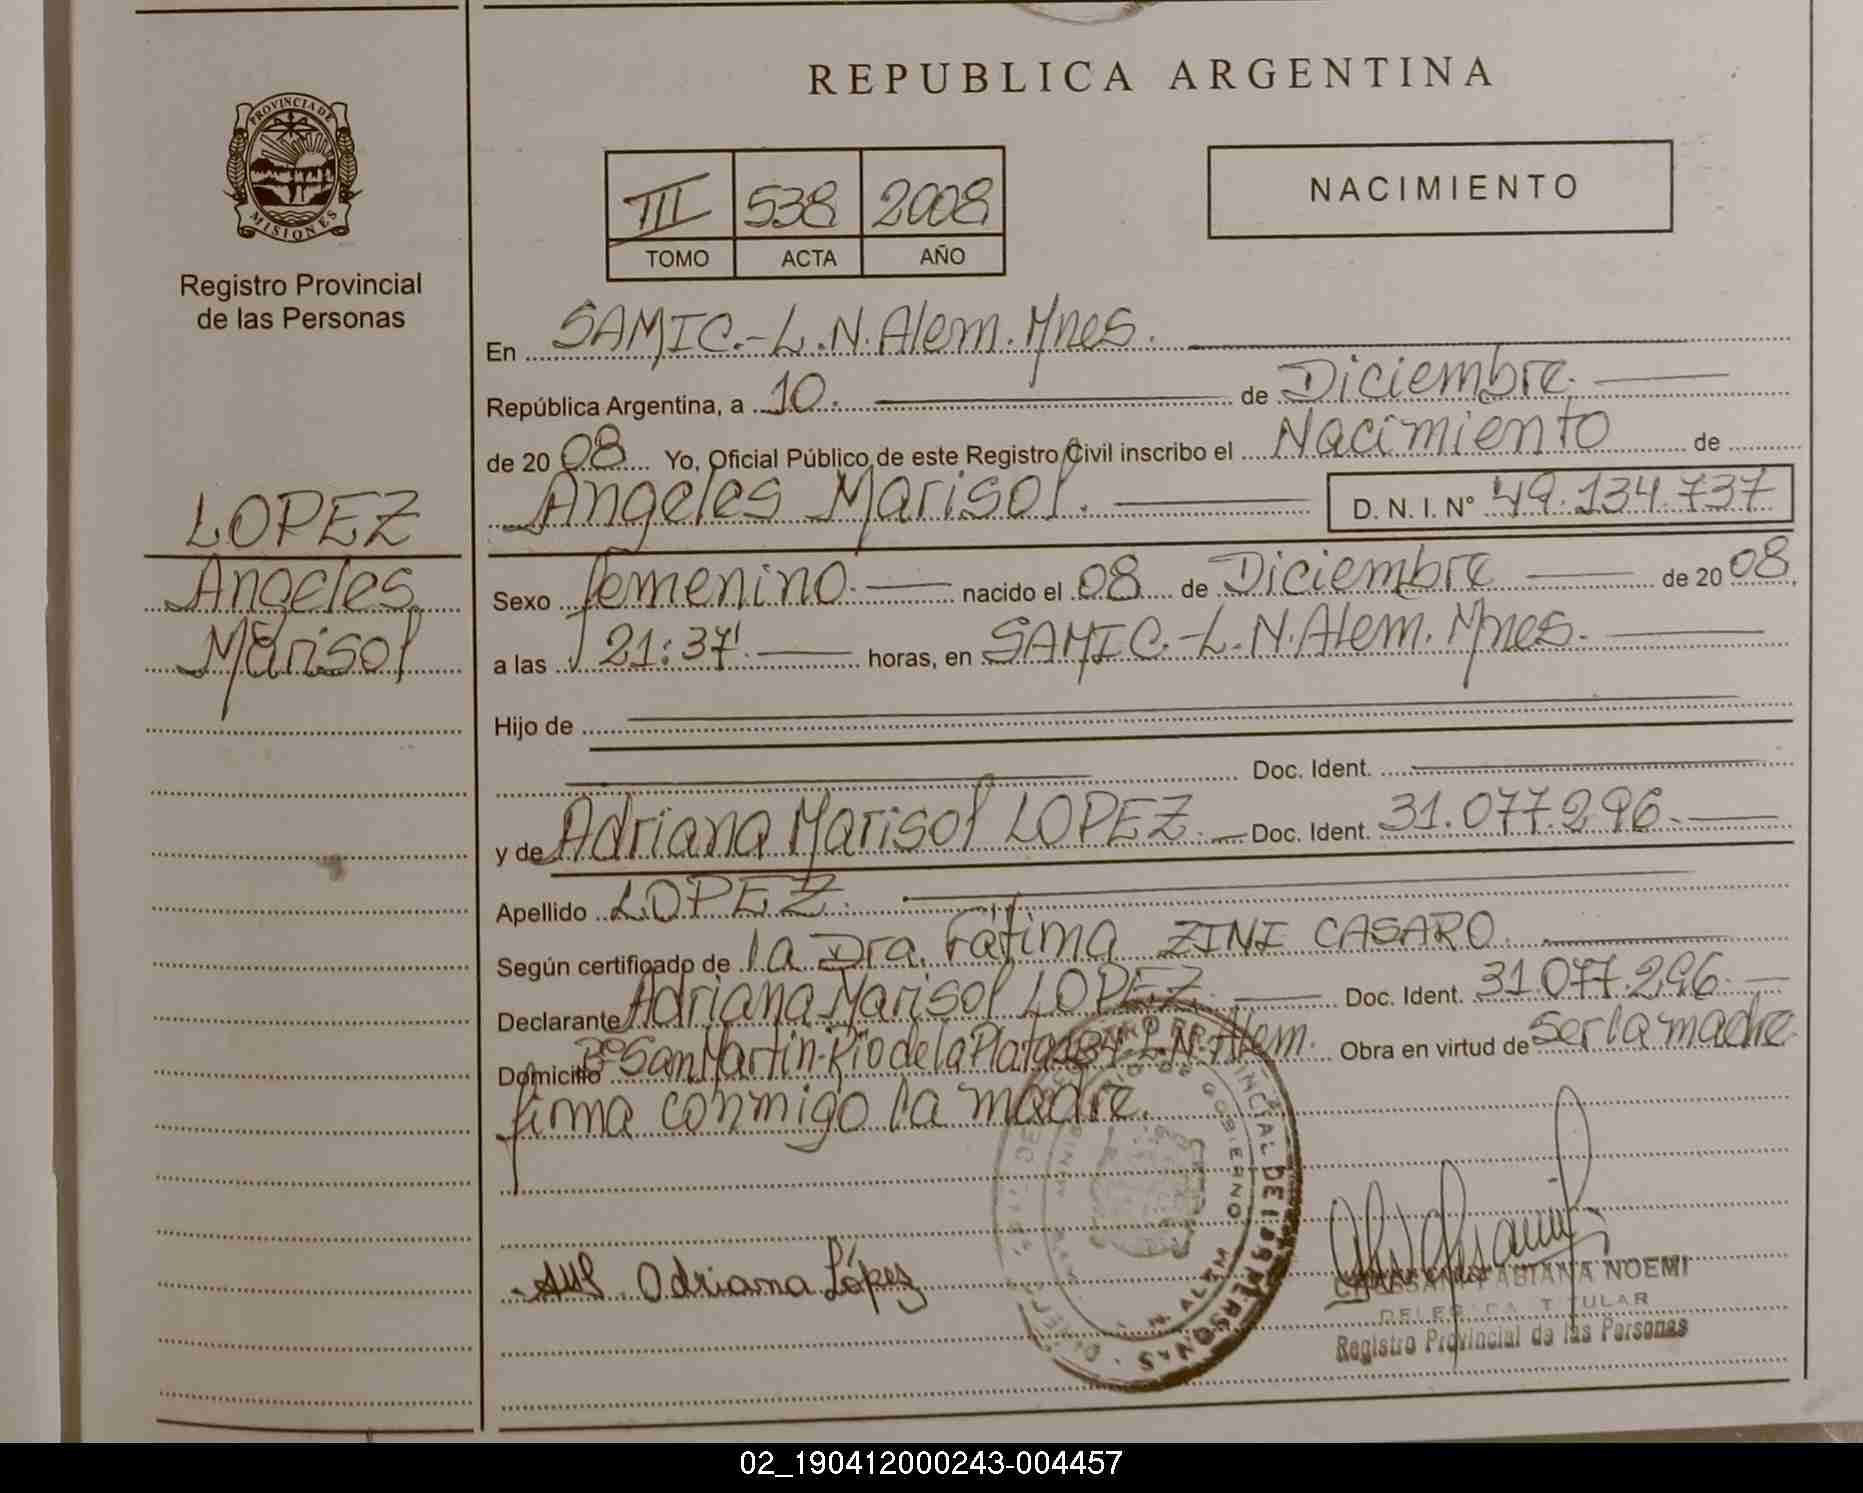 REPUBLICA ARGENTINA
PROVINCIA DE
MISIONES
Registro Provincial
de las Personas
III 538 2008
TOMO ACTA AÑO
NACIMIENTO
LOPEZ
Angeles
Marisol
En SAMIC.-L.N.Alem.Mnes.
República Argentina, a 10. de Diciembre.
de 2008 Yo, Oficial Público de este Registro Civil inscribo el Nacimiento de
Angeles Marisol. D. N. I. Nº 49.134.737
Sexo femenino. nacido el 08 de Diciembre de 2008
a las 21:37'. horas, en SAMIC.-L.N.Alem.Mnes.
Hijo de
Doc. Ident.
y de Adriana Marisol LOPEZ. Doc. Ident. 31.077.296.
Apellido LOPEZ.
Según certificado de la Dra. Fátima ZINI CASARO.
Declarante Adriana Marisol LOPEZ. Doc. Ident. 31.077.296.
Domicilio Bº San Martin-Rio de la Plata L.N.Alem. Obra en virtud de ser la madre
firma conmigo la madre.
Adriana López
FABIANA NOEMI
DELEGADA TITULAR
Registro Provincial de las Personas
02_190412000243-004457